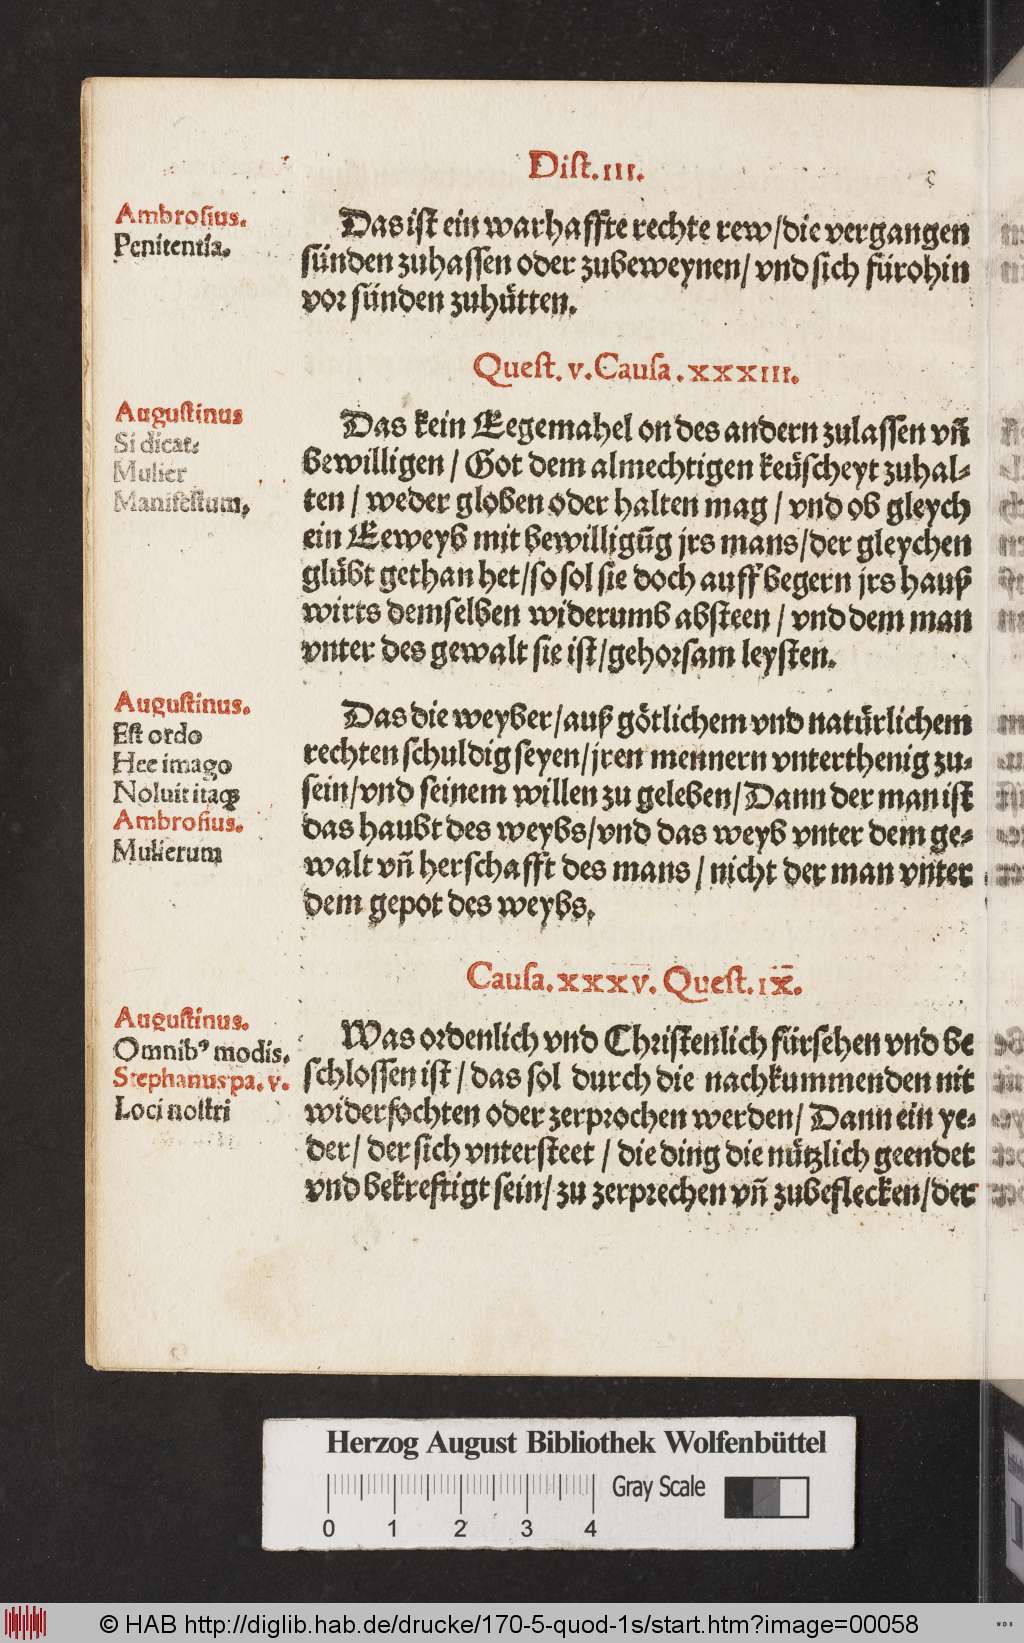 Dist. III.
Ambrosius.
Penitentia.
Das ist ein warhaffte rechte rew/die vergangen
sünden zuhassen oder zubeweynen/ vnd sich fürohin
vor sünden zuhuͤtten.
Quest. v. Causa. XXXIII.
Augustinus
Si dicat:
Mulier
Manifestum,
Das kein Eegemahel on des andern zulassen vñ
bewilligen / Got dem almechtigen keuͤscheyt zuhal⸗
ten / weder globen oder halten mag / vnd ob gleych
ein Eeweyb mit bewilligūg jrs mans/der gleychen
gluͤbt gethan het/so sol sie doch auff begern jrs hauß
wirts demselben widerumb absteen / vnd dem man
vnter des gewalt sie ist/gehorsam leysten.
Augustinus.
Est ordo
Hec imago
Noluit itaqꝫ
Ambrosius.
Mulierum
Das die weyber/auß goͤtlichem vnd natuͤrlichem
rechten schuldig seyen/jren mennern vnterthenig zu⸗
sein/vnd seinem willen zu geleben/Dann der man ist
das haubt des weybs/vnd das weyb vnter dem ge⸗
walt vñ herschafft des mans / nicht der man vnter
dem gepot des weybs.
Causa. XXXV. Quest. IX.
Augustinus.
Omnibꝰ modis.
Stephanus pa. v.
Loci nostri
Was ordenlich vnd Christenlich fürsehen vnd be
schlossen ist / das sol durch die nachkummenden nit
widerfochten oder zerprochen werden/ Dann ein ye⸗
der/ der sich vntersteet / die ding die nuͤtzlich geendet
vnd bekreftigt sein/ zu zerprechen vñ zubeflecken/der
Herzog August Bibliothek Wolfenbüttel
Gray Scale
0 1 2 3 4
© HAB http://diglib.hab.de/drucke/170-5-quod-1s/start.htm?image=00058